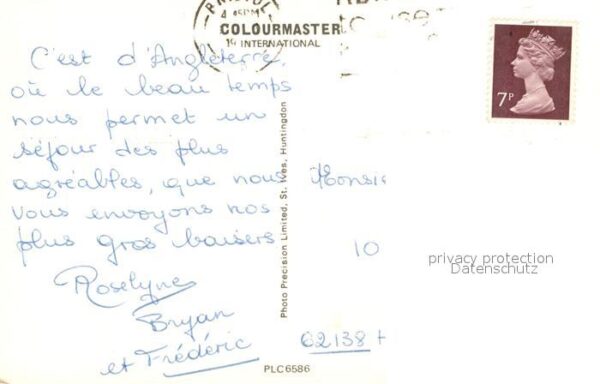 4 45PM
COLOURMASTER
INTERNATIONAL
7P
C'est d'Angleterre,
où le beau temps
nous permet un
séjour des plus
agréables, que nous
vous envoyons nos
plus gros baisers
Roselyne
Bryan
et Frédéric
Photo Precision Limited, St. Ives, Huntingdon
Monsie
10
62138 H
privacy protection
Datenschutz
PLC6586